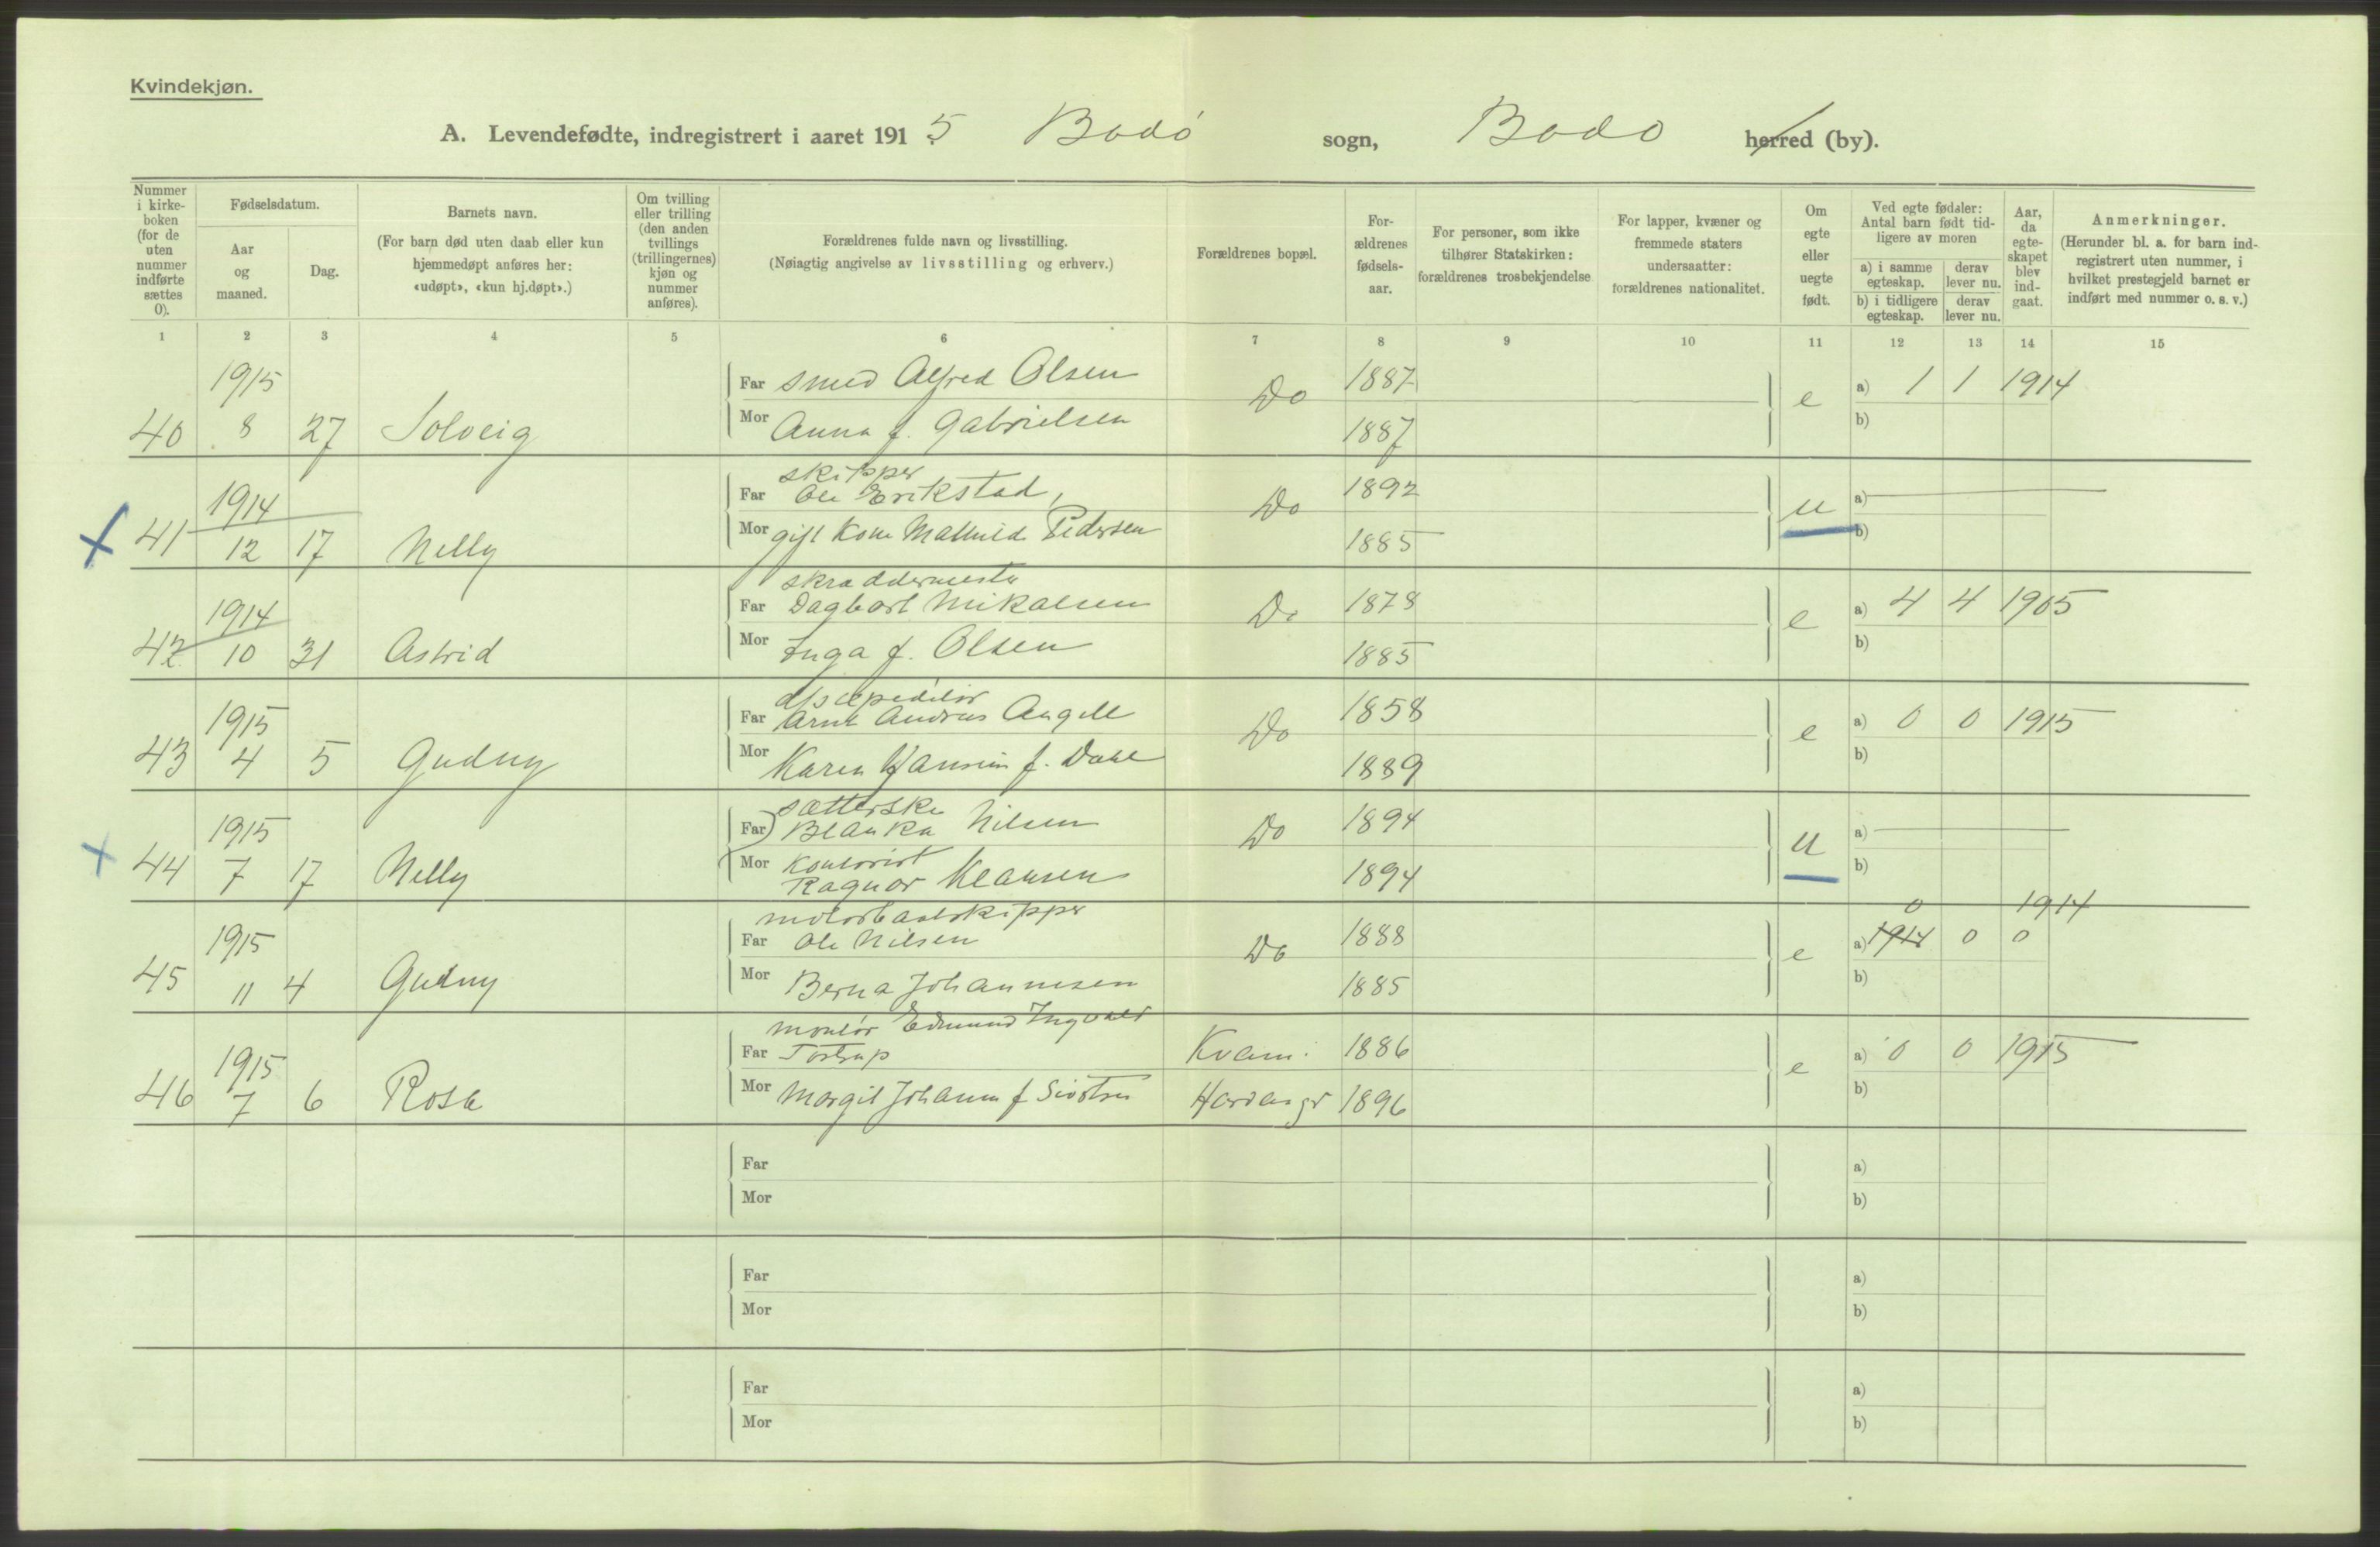 Kvindekjøn.
A. Levendefødte, indregistrert i aaret 1915 Bodó sogn, Bodo herred (by).
Nummer i kirke-boken (for de uten nummer indførte sættes 0).
Fødselsdatum.
Aar og maaned.
Dag.
Barnets navn.
(For barn død uten daab eller kun hjemmedøpt anføres her: «udøpt», «kun hj.døpt».)
Om tvilling eller trilling (den anden tvillings (trillingernes) kjøn og nummer anføres).
Forældrenes fulde navn og livsstilling.
(Nøiagtig angivelse av livsstilling og erhverv.)
Forældrenes bopæl.
For-ældrenes fødsels-aar.
For personer, som ikke tilhører Statskirken: forældrenes trosbekjendelse
For lapper, kvæner og fremmede staters undersaatter: forældrenes nationalitet.
Om egte eller uegte født.
Ved egte fødsler: Antal barn født tid-ligere av moren
a) i samme egteskap. derav lever nu.
b) i tidligere egteskap. derav lever nu.
Aar, da egte-skapet blev ind-gaat.
Anmerkninger.
(Herunder bl. a. for barn ind-registrert uten nummer, i hvilket prestegjeld barnet er indført med nummer o. s. v.)
1 2 3 4 5 6 7 8 9 10 11 12 13 14 15
1915 Far smed Alfred Olsen Do 1887 e a) 1 1 1914
40 8 27 Solveig Mor Anna f. Gabrielsen 1887 b)
skipper
1914 Far Ole Erikstad, Do 1892 u a)
41 12 17 Nelly Mor gift Kone Mathild Pedersen 1885 b)
skræddermester
1914 Far Dagbart Mikalsen Do 1878 e a) 4 4 1905
42 10 31 Astrid Mor Inga f. Olsen 1885 b)
d/s expeditør
1915 Far Arnt Andreas Angell Do 1858 e a) 0 0 1915
43 4 5 Gudny Mor Karen Hansine f. Dahl 1889 b)
sætterske
1915 Far Blanka Nilsen Do 1894 u a)
44 7 17 Nelly Mor Kontorist Ragnar Klausen 1894 b)
motorbaatskipper 0 1914
1915 Far Ole Nilsen Do 1888 e a) 1914 0 0
45 11 4 Gudny Mor Berna Johannesen 1885 b)
montør Edmund Ingvald
1915 Far Tostrup Kvam i 1886 e a) 0 0 1915
46 7 6 Rosa Mor Margit Johanne f Sivertsen Hardanger 1896 b)
Far a)
Mor b)
Far a)
Mor b)
Far a)
Mor b)